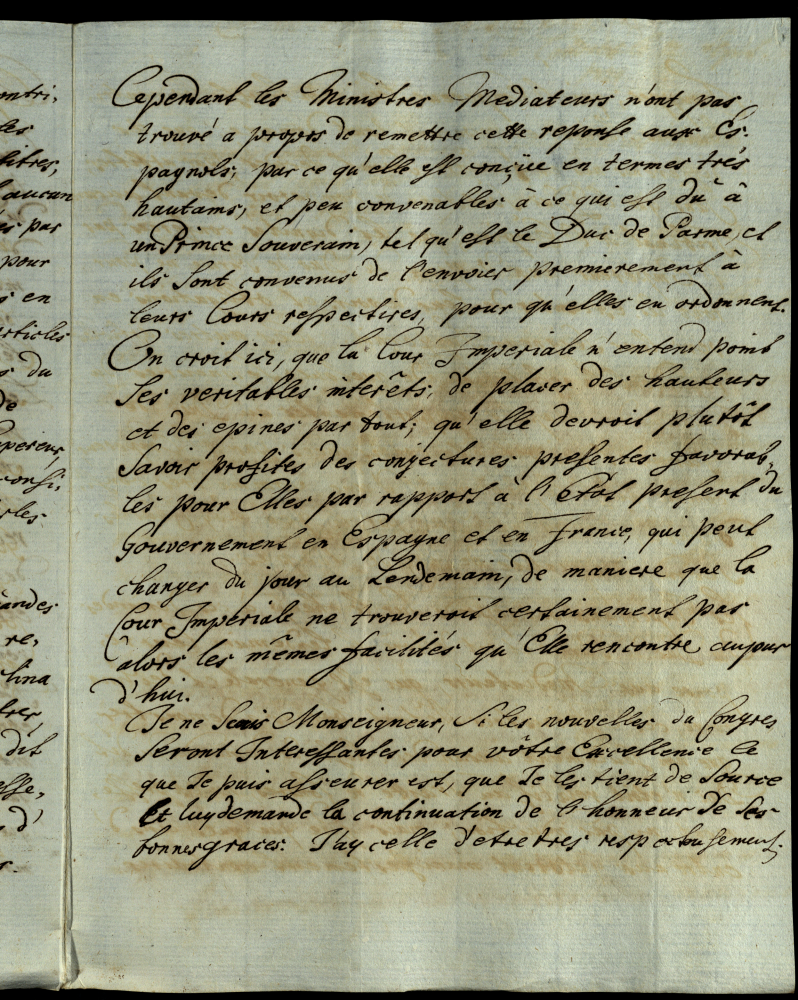 ontri,
les
litres,
l'aucun
es par
pour
s en
articles
s du
de
pereur,
consi,
cles
andes
re,
lina
tres,
dit
esse,
s d'
r.
Cependant les Ministres Mediateurs n'ont pas
trouvé a propos de remettre cette reponse aux Es-
pagnols, par ce qu'elle est conçüe en termes trés
hautains, et peu convenables à ce qui est dû à
un Prince Souverain, tel qu'est le Duc de Parme, et
ils sont convenus de l'envoier premierement à
leurs Cours respectives, pour qu'elles en ordonnent.
On croit ici, que la Cour Imperiale n'entend point
Ses veritables interêts, de placer des hauteurs
et des epines par tout; qu'elle devroit plutôt
Savoir profiter des conjectures presentes favorab,
les pour Elles par rapport à l'Etat present du
Gouvernement en Espagne et en France, qui peut
changer du jour au Lendemain, de maniere que la
Cour Imperiale ne trouveroit certainement pas
alors les mêmes facilités qu'Elle rencontre aujour
d'hui.
Je ne Scais Monseigneur, Si les nouvelles du Congres
Seront Interessantes pour vôtre Excellence Ce
que Je puis asseurer est, que Je les tient de Source
Et luy demande la continuation de l'honneur de Ses
bonnes graces. J'ay celle d'etre tres respectusement.